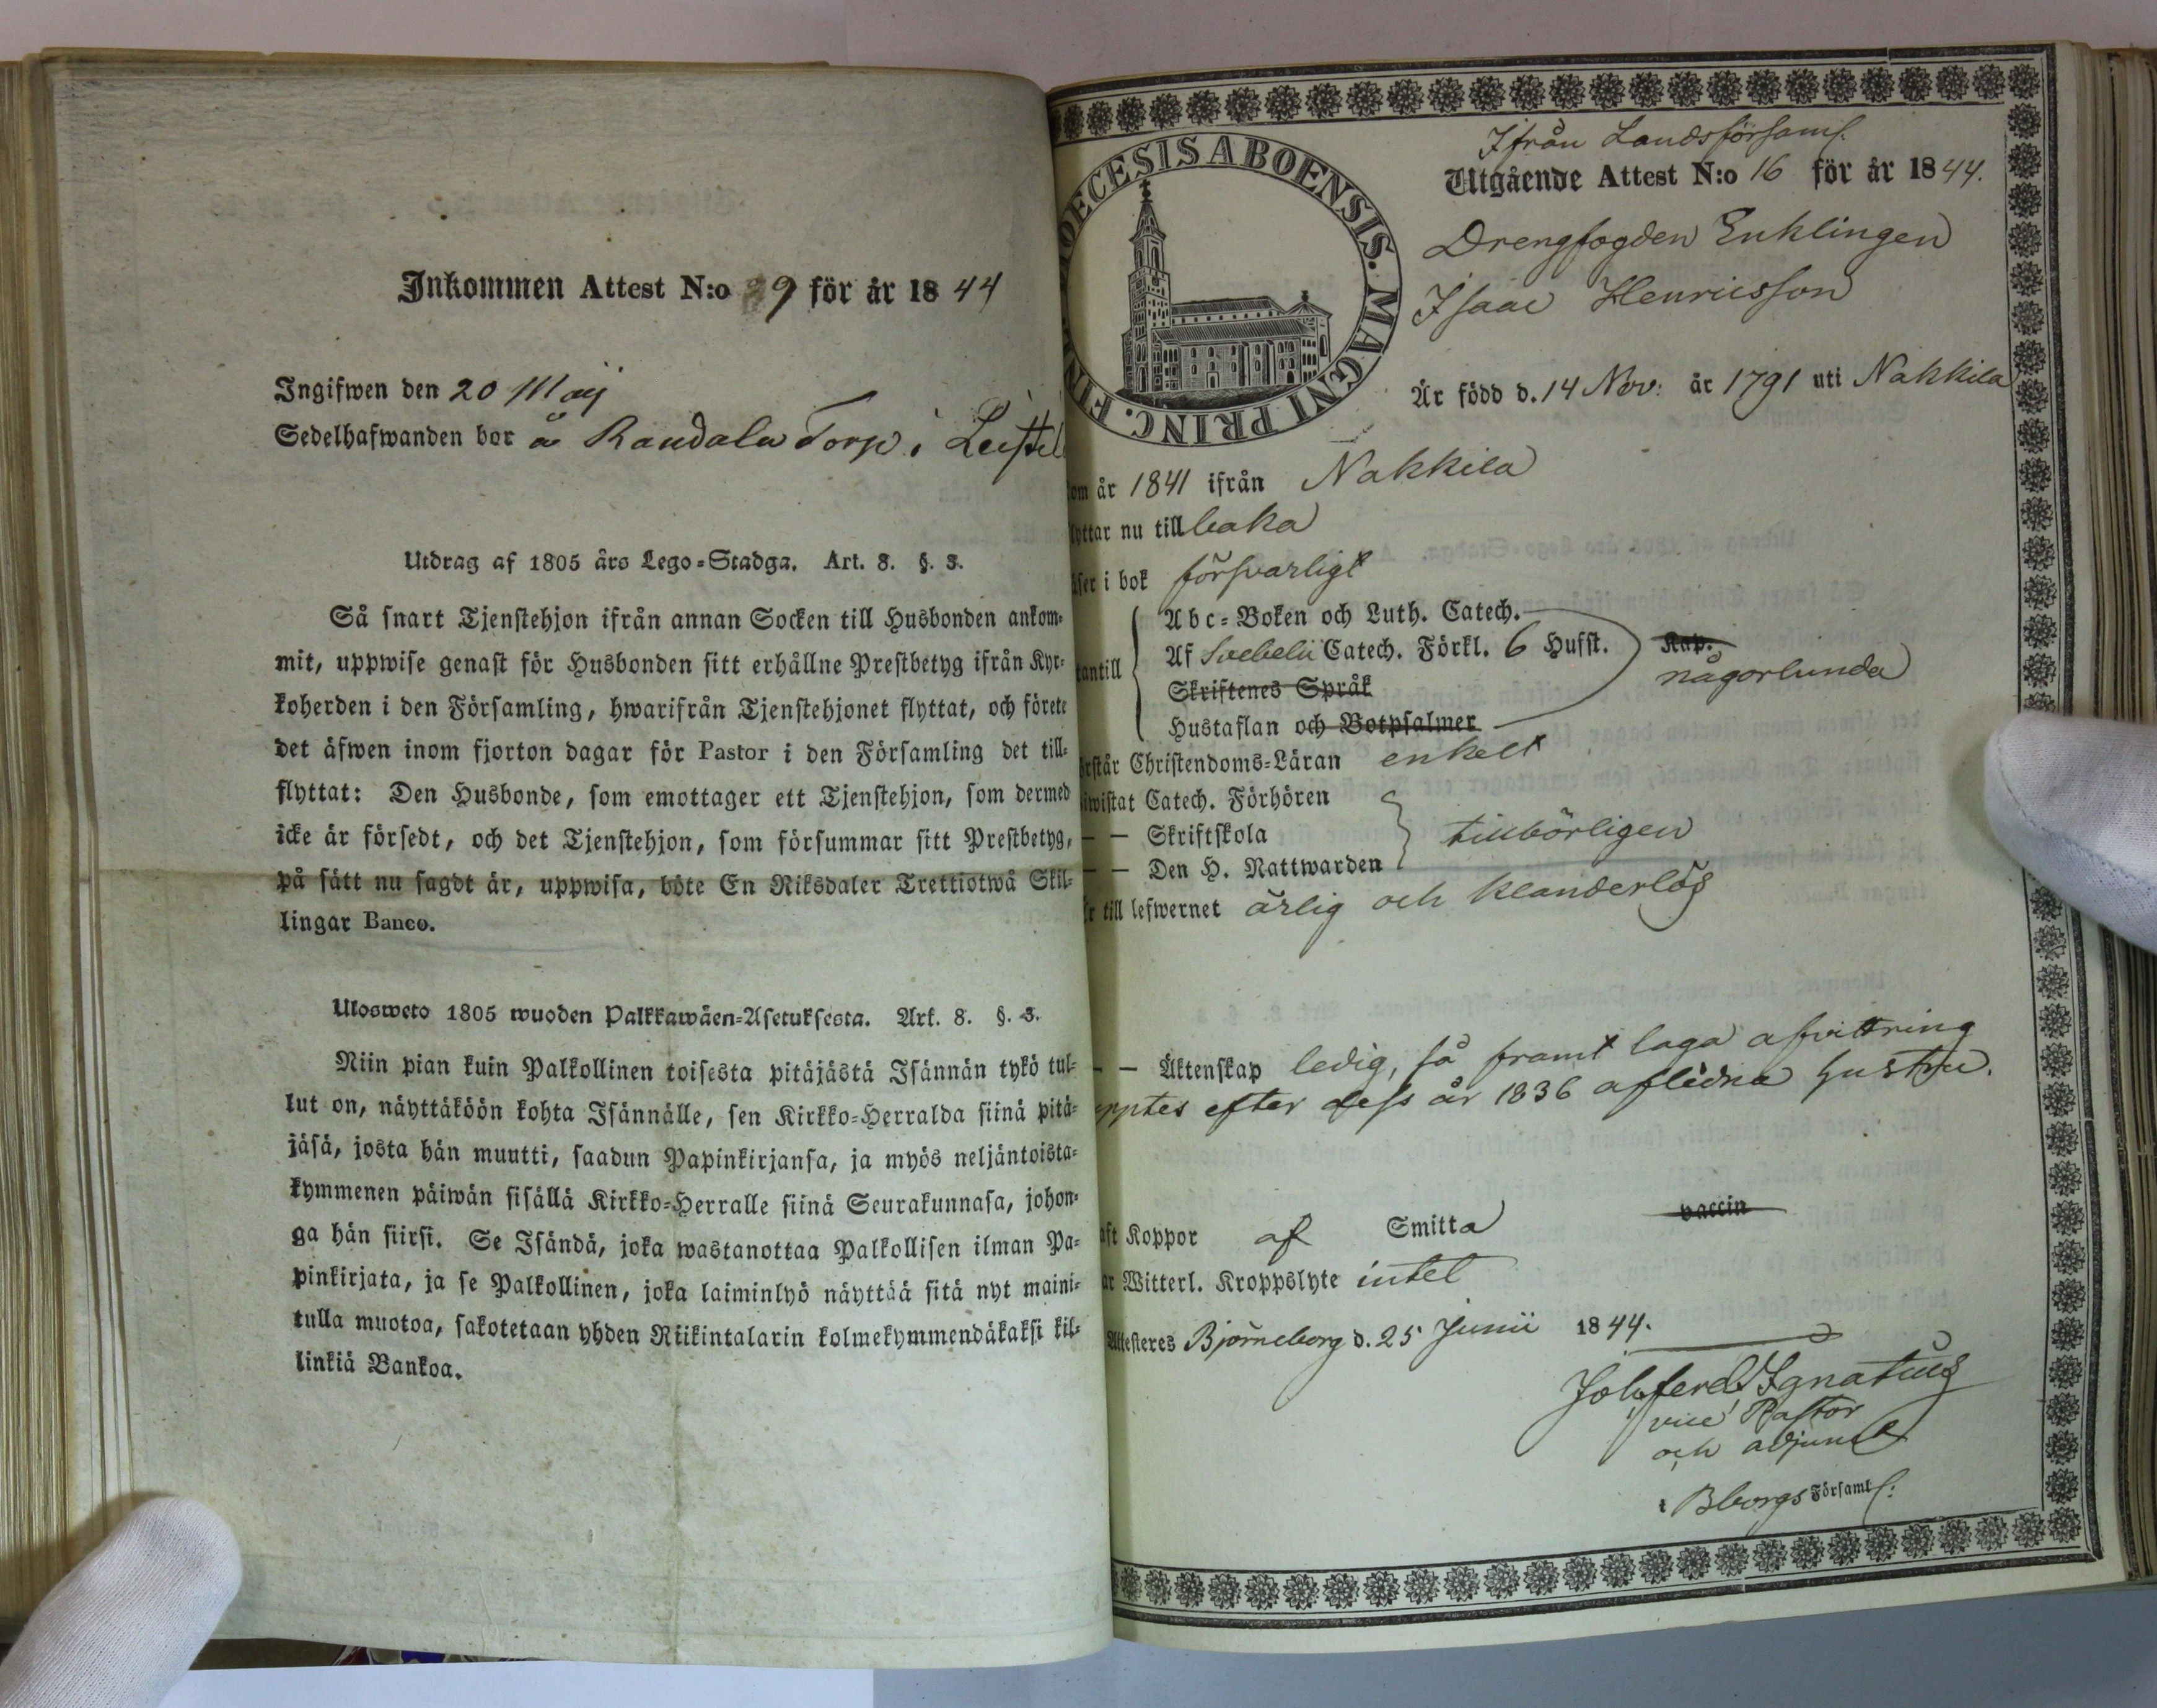 Inkommen Attest N:o 29 för år 1844
Ingifwen den 20 Maij
Sedelhafwanden bor å Raudala Torp i Leistil
Utdrag af 1805 års Lego=Stadga. Art. 8. §. 3.
Så snart Tjenstehjon ifrån annan Socken till Husbonden ankom=
mit, uppwise genast för Husbonden sitt erhållne Prestbetyg ifrån Kyr=
koherden i den Församling, hwarifrån Tjenstehjonet flyttat, och förete
det äfwen inom fjorton dagar för Pastor i den Församling det till=
flyttat: Den Husbonde, som emottager ett Tjenstehjon, som dermed
icke är försedt, och det Tjenstehjon, som försummar sitt Prestbetyg,
på sätt nu sagdt är, uppwisa, böte En Riksdaler Trettiotwå Skil=
lingar Banco.
Ulosweto 1805 wuoden Palkkawäen=Asetuksesta. Art. 8. §. 3.
Niin pian kuin Palkollinen toisesta pitäjästä Isännän tykö tul=
lut on, näyttäköön kohta Isännälle, sen Kirkko=Herralda siinä pitä=
jäsä, josta hän muutti, saadun Papinkirjansa, ja myös neljäntoista=
kymmenen päiwän sisällä Kirkko=Herralle siinä Seurakunnasa, johon=
ga hän siirsi. Se Isändä, joka wastanottaa Palkollisen ilman Pa=
pinkirjata, ja se Palkollinen, joka laiminlyö näyttää sitä nyt maini=
tulla muotoa, sakotetaan yhden Riikintalarin kolmekymmendäkaksi kil=
linkiä Bankoa.
OECESIS ABOENSIS. MAGNI PRINC. FIN
Ifrån Landsförsaml.
Utgående Attest N:o 16 för år 1844.
Drengfogden Euklingen
Isaac Henricsson
Är född d. 14 Nov: år 1791 uti Nakkila
om år 1841 ifrån Nakkila
lyttar nu tillbaka
äser i bok försvarligt
Abc=Boken och Luth. Catech.
tantill Af Svebelii Catech. Förkl. 6 Hufst. Kap. någorlunda
Skriftenes Språk
Hustaflan och Botpsalmer
örstår Christendoms=Läran enkelt
iwistat Catech. Förhören
— — Skriftskola tillbörligen
— — Den H. Nattwarden
är till lefwernet ärlig och klanderlös
— — Äktenskap ledig, så framt laga afvittring
upptes efter dess år 1836 aflidna hustru.
aft Koppor af Smitta vaccin
ar Witterl. Kroppslyte intet
Attesteres Björneborg d. 25 Junii 1844.
Joh. Ferd. Ignatius
vice Pastor
och adjunct
i Bborgs Församl: